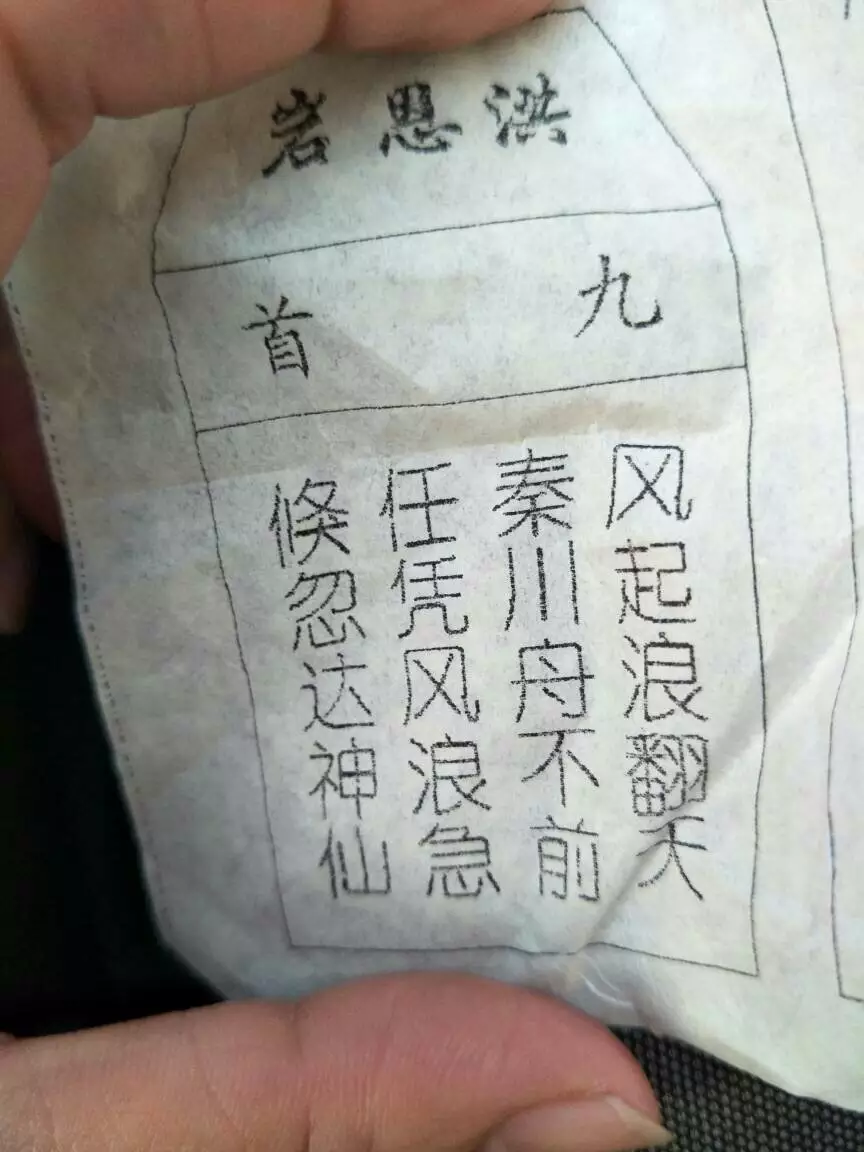 洪恩岩
九首
风起浪翻天
秦川舟不前
任凭风浪急
倏忽达神仙